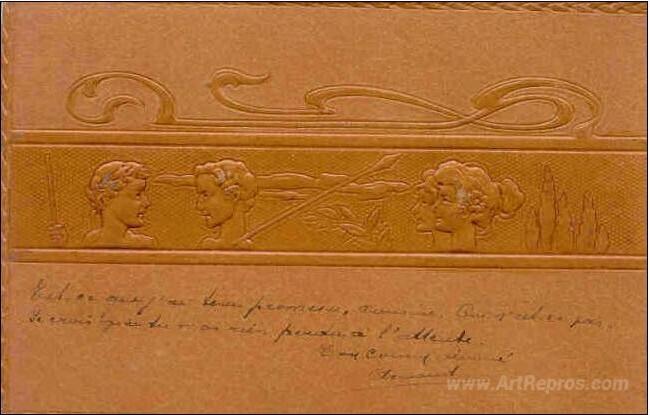 Est-ce que j'ai tenu promesse, cousine. Oui n'est-ce pas.
Je crois que tu n'as rien perdu à l'attente.
Ton cousin
www.ArtRepros.com